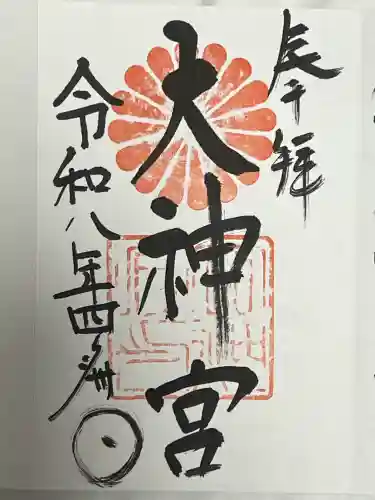 奉拝
大神宮
令和八年四